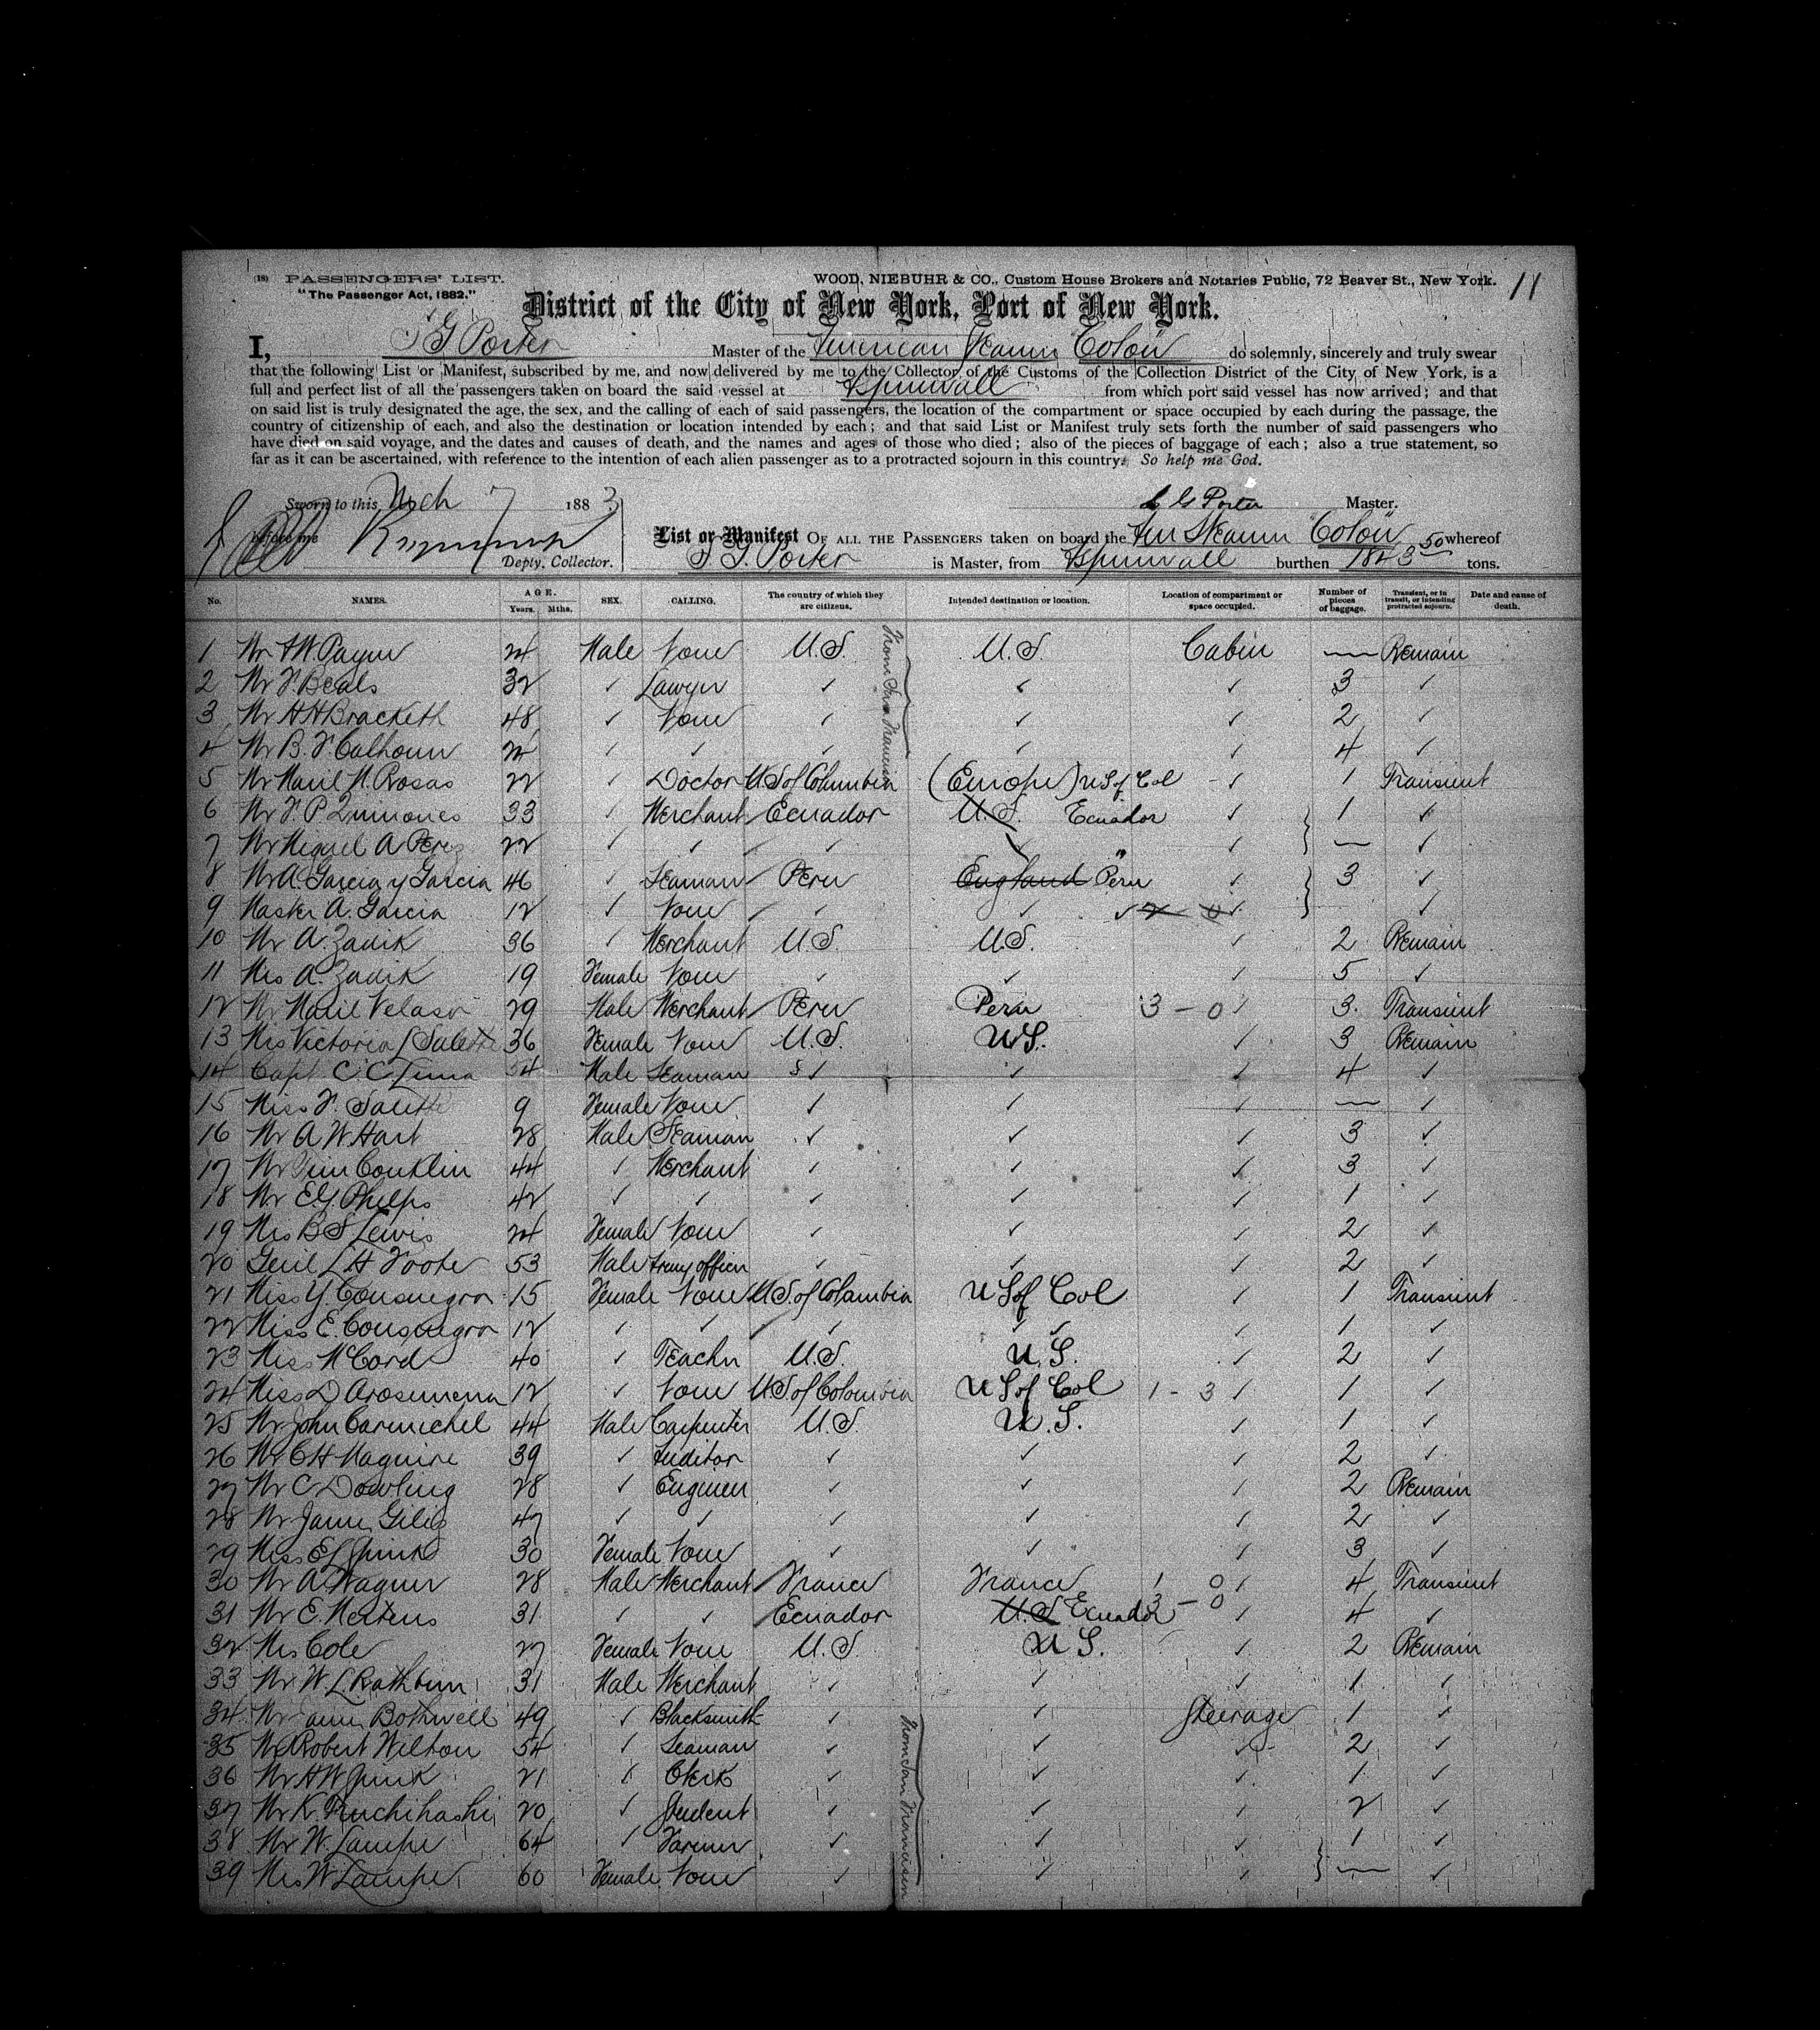 (18) PASSENGERS' LIST.
WOOD, NIEBUHR & CO., Custom House Brokers and Notaries Public, 72 Beaver St., New York. 11
"The Passenger Act, 1882."
District of the City of New York, Port of New York.
I, G Porter Master of the American Steamer Colon do solemnly, sincerely and truly swear
that the following List or Manifest, subscribed by me, and now delivered by me to the Collector of the Customs of the Collection District of the City of New York, is a
full and perfect list of all the passengers taken on board the said vessel at Aspinwall from which port said vessel has now arrived; and that
on said list is truly designated the age, the sex, and the calling of each of said passengers, the location of the compartment or space occupied by each during the passage, the
country of citizenship of each, and also the destination or location intended by each; and that said List or Manifest truly sets forth the number of said passengers who
have died on said voyage, and the dates and causes of death, and the names and ages of those who died; also of the pieces of baggage of each; also a true statement, so
far as it can be ascertained, with reference to the intention of each alien passenger as to a protracted sojourn in this country: So help me God.
Sworn to this Mch 7 1883
G Porter Master.
before me
Depty. Collector.
List or Manifest OF ALL THE PASSENGERS taken on board the Am Steamer Colon whereof
G. Porter is Master, from Aspinwall burthen 1843 50 tons.
No. NAMES. AGE. Years. Mths. SEX. CALLING. The country of which they are citizens. Intended destination or location. Location of compartment or space occupied. Number of pieces of baggage. Transient, or in transit, or intending protracted sojourn. Date and cause of death.
From San Francisco
1 Mr Payne 24 Male None U.S. U.S. Cabin — Remain
2 Mr F. Beals 32 ✓ Lawyer ✓ ✓ ✓ 3 ✓
3 Mr HH Brackett 48 ✓ None ✓ ✓ ✓ 2 ✓
4 Mr B. F. Calhoun 24 ✓ ✓ ✓ ✓ ✓ 4 ✓
5 Mr Manl M. Rosas 22 ✓ Doctor U.S of Columbia (Europe) U S of Col ✓ 1 Transient
6 Mr F. P Quinones 33 ✓ Merchant Ecuador U.S. Ecuador ✓ 1 ✓
7 Mr Miguel A Perez 22 ✓ ✓ ✓ " ✓ — ✓
8 Mr A. Garcia y Garcia 46 ✓ Seaman Peru England Peru ✓ 3 ✓
9 Master A. Garcia 12 ✓ None ✓ ✓ ✓ 2 0 ✓ ✓
10 Mr A. Zadik 36 ✓ Merchant U.S. U.S. ✓ 2 Remain
11 Mrs A. Zadik 19 Female None ✓ ✓ ✓ 5 ✓
12 Mr Manl Velasco 29 Male Merchant Peru Peru 3 - 0 ✓ 3 Transient
13 Mrs Victoria 36 Female None U.S. U.S. ✓ 3 Remain
14 Capt. C. C Lima 54 Male Seaman ✓ ✓ ✓ 4 ✓
15 Miss F. 9 Female None ✓ ✓ ✓ — ✓
16 Mr A W Hart 28 Male Seaman ✓ ✓ ✓ 3 ✓
17 Mr Conklin 44 ✓ Merchant ✓ ✓ ✓ 3 ✓
18 Mr E.Y. Phelps 42 ✓ ✓ ✓ ✓ ✓ 1 ✓
19 Mrs B S Lewis 24 Female None ✓ ✓ ✓ 2 ✓
20 Genl L H Foote 53 Male Army officer ✓ ✓ ✓ 2 ✓
21 Miss Y. Consuegra 15 Female None U.S. of Columbia U S of Col ✓ 1 Transient
22 Miss E. Consuegra 12 ✓ ✓ ✓ ✓ ✓ ✓ 1 ✓
23 Miss McCord 40 ✓ Teacher U.S. U.S. ✓ 2 ✓
24 Miss D Arosemena 12 ✓ None U.S. of Colombia U S of Col 1 - 3 ✓ 1 ✓
25 Mr John Carmichel 44 Male Carpenter U.S. U.S. ✓ 1 ✓
26 Mr C H Maguire 39 ✓ Auditor ✓ ✓ ✓ 2 ✓
27 Mr C Dowling 28 ✓ Engineer ✓ ✓ ✓ 2 Remain
28 Mr James 47 ✓ ✓ ✓ ✓ ✓ 2 ✓
29 Miss 30 Female None ✓ ✓ ✓ 3 ✓
30 Mr A Wagner 28 Male Merchant France France 1 0 ✓ 4 Transient
31 Mr E. Mertens 31 ✓ ✓ Ecuador U.S. Ecuador 3 - 0 ✓ 4 ✓
32 Mrs Cole 27 Female None U.S. U S. ✓ 2 Remain
33 Mr W. L Rathbun 31 Male Merchant ✓ ✓ ✓ 1 ✓
34 Mr James Bothwell 49 ✓ Blacksmith ✓ ✓ Steerage 1 ✓
From San Francisco
35 Mr Robert Wilton 54 ✓ Seaman ✓ ✓ ✓ 2 ✓
36 Mr H W 21 ✓ Clerk ✓ ✓ ✓ 1 ✓
37 Mr K. 20 ✓ Student ✓ ✓ ✓ 2 ✓
38 Mr W. Lampe 64 ✓ Farmer ✓ ✓ ✓ 1 ✓
39 Mrs W Lampe 60 Female None ✓ ✓ ✓ — ✓